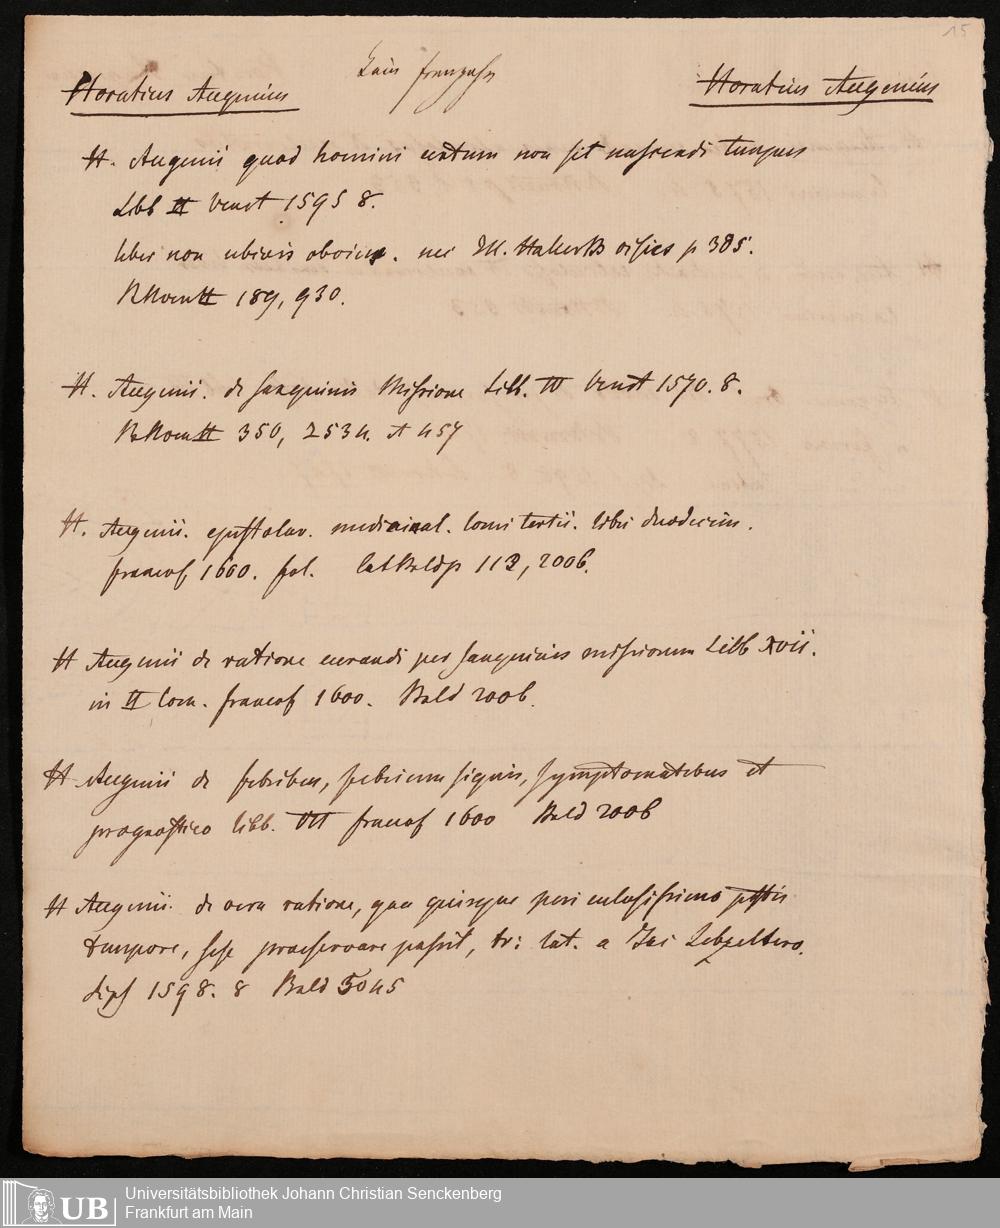 15
Horatius Augenius
Horatius Augenius
H. Augenii quod homini certum non sit nascendi tempus
Libb II Venet 1595 8.
liber non ubivis obvius. nec Ill. Hallero visus p 385.
189, 930.
H. Augenii. de sanguinis Missione Libb. IV Venet 1570. 8.
350, 2534. et 457
H. Augenii. epistolar. medicinal. tomi tertii. libri duodecim.
francof, 1600. fol. Cat Baldg 113, 2006.
H Augenii de ratione curandi per sanguinis missionem Libb XVii.
in II Tom. francof 1600. Bald 2006.
H Augenii de febribus, febrium signis, symptomatibus et
prognostico libb. VII francof 1600 Bald 2006
H Augenii. de vera ratione, qua quisque periculosissimo pestis
tempore, sese praeservare possit, tr: lat. a Jac Lebzeltero.
Lips 1598. 8 Bald 5045
Universitätsbibliothek Johann Christian Senckenberg
Frankfurt am Main
UB